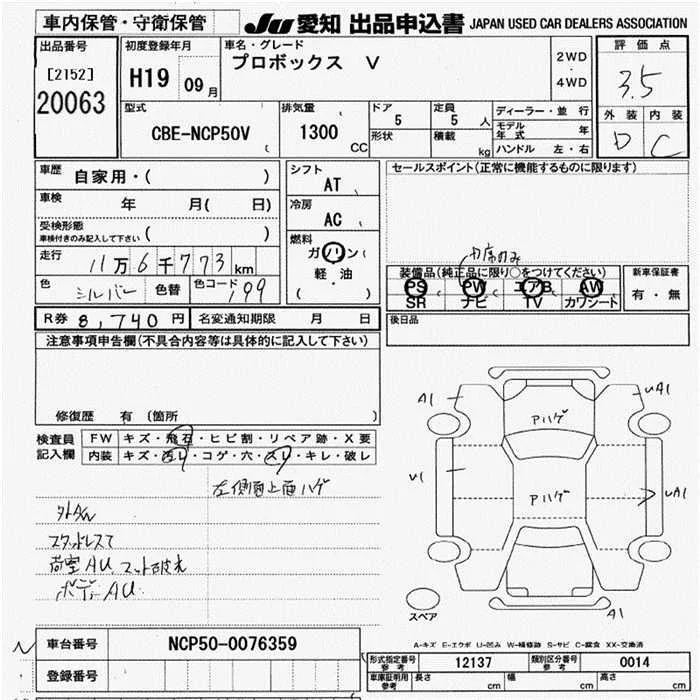 車内保管・守衛保管
JU 愛知 出品申込書 JAPAN USED CAR DEALERS ASSOCIATION
出品番号
[2152]
20063
初度登録年月
H19 09月
車名・グレード
プロボックス V
2WD
・
4WD
評価点
3.5
外装 内装
D C
型式
CBE-NCP50V
排気量
1300 CC
ドア
5
形状
定員
5 人
積載
kg
ディーラー・並行
モデル年式 年
ハンドル 左・右
車歴
自家用・( )
車検
年 月( 日)
受検形態
車検付きのみ記入して下さい ( )
走行
11万6千773km
色
シルバー 色替
色コード
199
シフト
AT
冷房
AC
燃料
ガソリン
軽・油
( )
セールスポイント(正常に機能するものに限ります)
力席のみ
装備品(純正品に限り○をつけてください)
PS PW エアB AW
SR ナビ TV カワシート
新車保証書
有・無
後日品
R券 8,740円
名変通知期限 月 日
注意事項申告欄(不具合内容等は具体的に記入して下さい)
修復歴 有 (箇所 )
検査員記入欄
FW キズ・飛石・ヒビ割・リペア跡・X要
内装 キズ・汚レ・コゲ・穴・スレ・キレ・破レ
左側面上面ハゲ
スタットレス
荷室AU. マット破れ
ボディAU.
A1
UA1
Aハゲ
U1
Aハゲ
UA1
A1
スペア
A-キズ E-エクボ U-凹み W-補修跡 S-サビ C-腐食 XX-交換済
車台番号
NCP50-0076359
登録番号
形式指定番号
参考
12137
類別区分番号
参考
0014
車庫証明用
参考
長さ cm
幅 cm
高さ cm